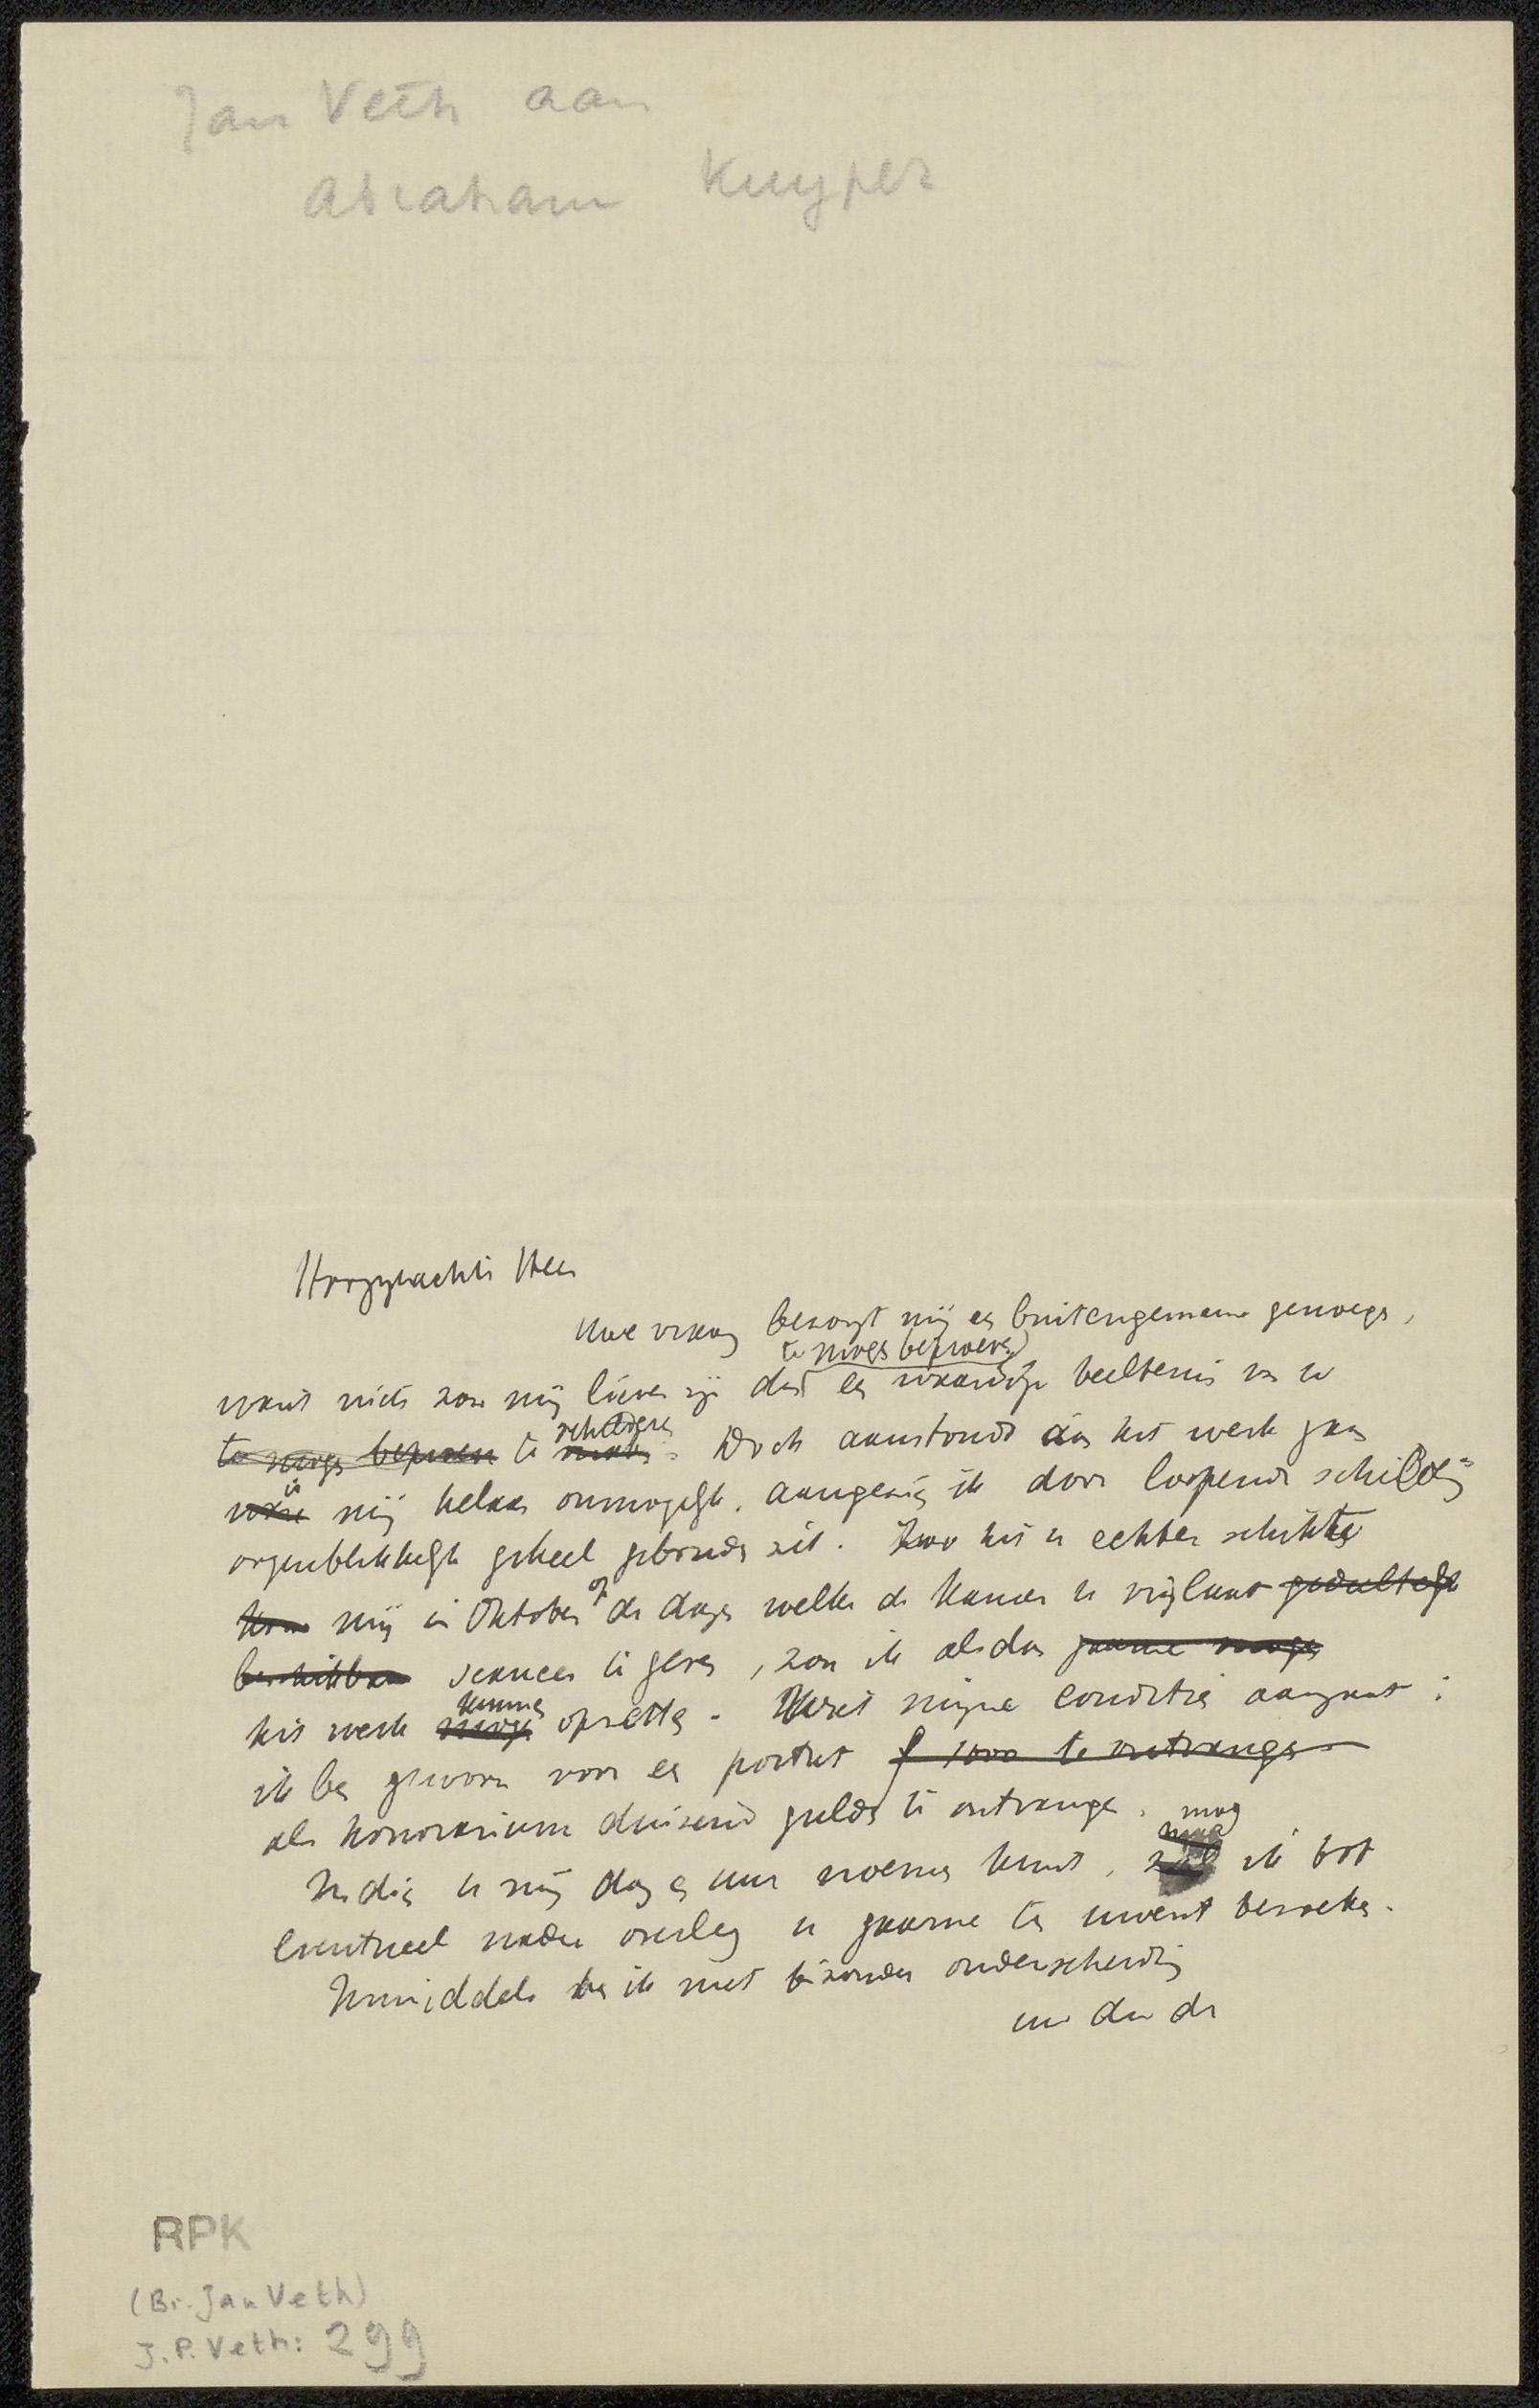 Jan Veth aan
Abraham Kuyper
Hooggeachte Heer
Uwe vraag bezorgt mij een buitengemeen genoegen,
te mogen beproeven
want niets zou mij liever zijn dan een waardige beeltenis van u
schilderen
te mogen beproeven te maken. Doch aanstonds aan het werk gaan
is
ware mij helaas onmogelijk, aangezien ik door loopende schilderij
oogenblikkelijk geheel gebonden zit. Zoo het u echter schikte
op
mij in Oktober de dagen welke de Kamer u vrijlaat gedeeltelijk
beschikbaar seances te geven, zou ik alsdan gaarne mogen
kunnen
het werk mogen opzetten. Wat mijne conditie aangaat:
ik ben gewoon voor een portret f 1000 te ontvangen
als honorarium duizend gulden te ontvangen.
mag
Indien u mij dag en uur noemen kunt, zal ik tot
eventueel nader overleg u gaarne ten uwent bezoeken.
Inmiddels ben ik met bizondere onderscheiding
uw dw dr
RPK
(Br. Jan Veth)
J.P. Veth: 299